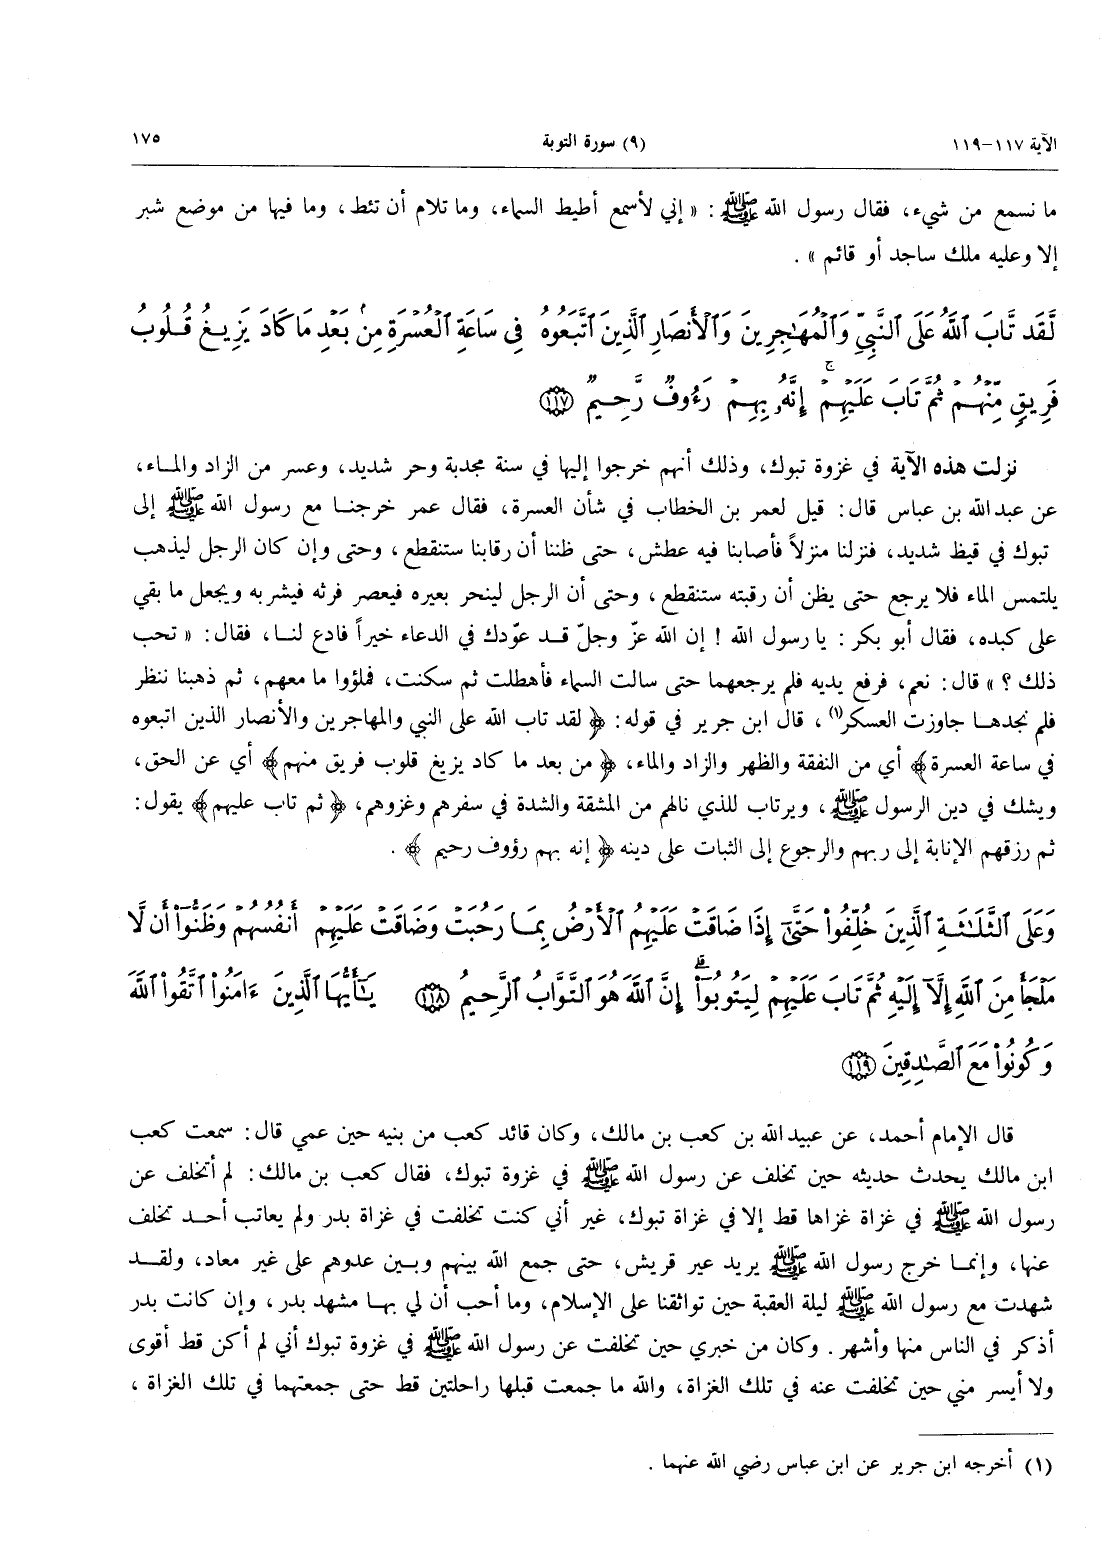 الآية ١١٧-١١٩ (٩) سورة التوبة ١٧٥
ما نسمع من شيء، فقال رسول الله ﷺ : « إني لأسمع أطيط السماء، وما تلام أن تئط، وما فيها من موضع شبر
إلا وعليه ملك ساجد أو قائم » .
لَّقَد تَّابَ ٱللَّهُ عَلَى ٱلنَّبِىِّ وَٱلْمُهَـٰجِرِينَ وَٱلْأَنصَارِ ٱلَّذِينَ ٱتَّبَعُوهُ فِى سَاعَةِ ٱلْعُسْرَةِ مِنۢ بَعْدِ مَا كَادَ يَزِيغُ قُلُوبُ
فَرِيقٍ مِّنْهُمْ ثُمَّ تَابَ عَلَيْهِمْ ۚ إِنَّهُۥ بِهِمْ رَءُوفٌ رَّحِيمٌ ﴿١١٧﴾
نزلت هذه الآية في غزوة تبوك، وذلك أنهم خرجوا إليها في سنة مجدبة وحر شديد، وعسر من الزاد والماء،
عن عبدالله بن عباس قال: قيل لعمر بن الخطاب في شأن العسرة، فقال عمر خرجنا مع رسول الله ﷺ إلى
تبوك في قيظ شديد، فنزلنا منزلاً فأصابنا فيه عطش، حتى ظننا أن رقابنا ستنقطع، وحتى وإن كان الرجل ليذهب
يلتمس الماء فلا يرجع حتى يظن أن رقبته ستنقطع، وحتى أن الرجل لينحر بعيره فيعصر فرثه فيشربه ويجعل ما بقي
على كبده، فقال أبو بكر: يا رسول الله ! إن الله عزّ وجلّ قد عوّدك في الدعاء خيراً فادع لنا، فقال: « تحب
ذلك ؟ » قال: نعم، فرفع يديه فلم يرجعهما حتى سالت السماء فأهطلت ثم سكنت، فملؤوا ما معهم، ثم ذهبنا ننظر
فلم نجدها جاوزت العسكر(١)، قال ابن جرير في قوله: ﴿ لقد تاب الله على النبي والمهاجرين والأنصار الذين اتبعوه
في ساعة العسرة﴾ أي من النفقة والظهر والزاد والماء، ﴿ من بعد ما كاد يزيغ قلوب فريق منهم﴾ أي عن الحق،
ويشك في دين الرسول ﷺ، ويرتاب للذي نالهم من المشقة والشدة في سفرهم وغزوهم، ﴿ ثم تاب عليهم﴾ يقول:
ثم رزقهم الإنابة إلى ربهم والرجوع إلى الثبات على دينه ﴿ إنه بهم رؤوف رحيم ﴾ .
وَعَلَى ٱلثَّلَـٰثَةِ ٱلَّذِينَ خُلِّفُوا۟ حَتَّىٰٓ إِذَا ضَاقَتْ عَلَيْهِمُ ٱلْأَرْضُ بِمَا رَحُبَتْ وَضَاقَتْ عَلَيْهِمْ أَنفُسُهُمْ وَظَنُّوٓا۟ أَن لَّا
مَلْجَأَ مِنَ ٱللَّهِ إِلَّآ إِلَيْهِ ثُمَّ تَابَ عَلَيْهِمْ لِيَتُوبُوٓا۟ ۚ إِنَّ ٱللَّهَ هُوَ ٱلتَّوَّابُ ٱلرَّحِيمُ ﴿١١٨﴾ يَـٰٓأَيُّهَا ٱلَّذِينَ ءَامَنُوا۟ ٱتَّقُوا۟ ٱللَّهَ
وَكُونُوا۟ مَعَ ٱلصَّـٰدِقِينَ ﴿١١٩﴾
قال الإمام أحمد، عن عبيدالله بن كعب بن مالك، وكان قائد كعب من بنيه حين عمي قال: سمعت كعب
ابن مالك يحدث حديثه حين تخلف عن رسول الله ﷺ في غزوة تبوك، فقال كعب بن مالك: لم أتخلف عن
رسول الله ﷺ في غزاة غزاها قط إلا في غزاة تبوك، غير أني كنت تخلفت في غزاة بدر ولم يعاتب أحد تخلف
عنها، وإنما خرج رسول الله ﷺ يريد عير قريش، حتى جمع الله بينهم وبين عدوهم على غير معاد، ولقد
شهدت مع رسول الله ﷺ ليلة العقبة حين تواثقنا على الإسلام، وما أحب أن لي بها مشهد بدر، وإن كانت بدر
أذكر في الناس منها وأشهر. وكان من خبري حين تخلفت عن رسول الله ﷺ في غزوة تبوك أني لم أكن قط أقوى
ولا أيسر مني حين تخلفت عنه في تلك الغزاة، والله ما جمعت قبلها راحلتين قط حتى جمعتهما في تلك الغزاة ،
(١) أخرجه ابن جرير عن ابن عباس رضي الله عنهما .